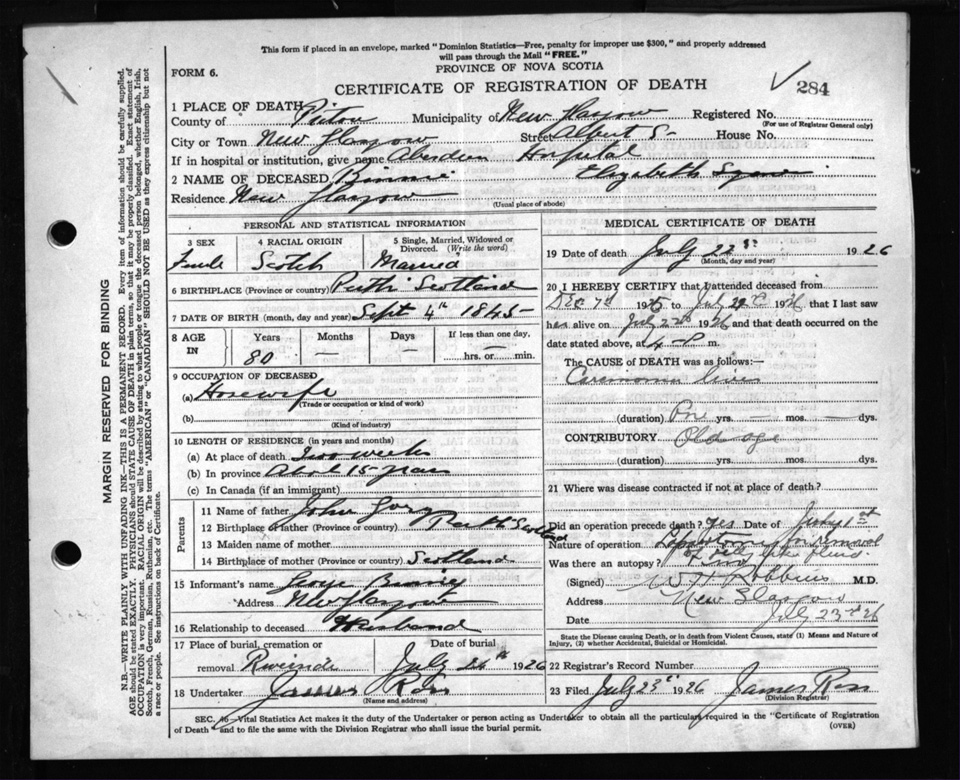 This form if placed in an envelope, marked "Dominion Statistics—Free, penalty for improper use $300," and properly addressed
will pass through the Mail "FREE."
PROVINCE OF NOVA SCOTIA
FORM 6.
CERTIFICATE OF REGISTRATION OF DEATH
284
1 PLACE OF DEATH
County of Pictou Municipality of New Glasgow Registered No.
(For use of Registrar General only)
City or Town New Glasgow Street Albert St House No.
If in hospital or institution, give name Aberdeen Hospital
2 NAME OF DECEASED Binnie Elizabeth
Residence New Glasgow
(Usual place of abode)
PERSONAL AND STATISTICAL INFORMATION
3 SEX 4 RACIAL ORIGIN 5 Single, Married, Widowed or Divorced. (Write the word)
Female Scotch Married
6 BIRTHPLACE (Province or country) Perth Scotland
7 DATE OF BIRTH (month, day and year) Sept 4th 1845
8 AGE IN Years Months Days If less than one day,
80 — — — hrs. or min.
9 OCCUPATION OF DECEASED
(a) Housewife
(Trade or occupation or kind of work)
(b)
(Kind of industry)
10 LENGTH OF RESIDENCE (in years and months)
(a) At place of death Two weeks
(b) In province About 15 years
(c) In Canada (if an immigrant)
Parents
11 Name of father John
12 Birthplace of father (Province or country) Perth Scotland
13 Maiden name of mother
14 Birthplace of mother (Province or country) Scotland
15 Informant's name George
Address New Glasgow
16 Relationship to deceased Husband
17 Place of burial, cremation or removal Date of burial
July 24th 1926
18 Undertaker James Ross
(Name and address)
MEDICAL CERTIFICATE OF DEATH
19 Date of death July 22 1926
(Month, day and year)
20 I HEREBY CERTIFY that I attended deceased from
Dec 7th 1925 to July 22nd 1926 that I last saw
her alive on July 22nd 1926 and that death occurred on the
date stated above, at 4 P m.
The CAUSE of DEATH was as follows:—
Carcinoma liver
(duration) One yrs. — mos. — dys.
CONTRIBUTORY Old age
(duration) yrs. mos. dys.
21 Where was disease contracted if not at place of death?
Did an operation precede death? Yes Date of July 1st
Nature of operation for removal
of fluid
Was there an autopsy?
(Signed) W H Robbins M.D.
Address New Glasgow
Date July 23rd 26
State the Disease causing Death, or in death from Violent Causes, state (1) Means and Nature of
Injury, (2) whether Accidental, Suicidal or Homicidal.
22 Registrar's Record Number
23 Filed July 23rd 1926 James Ross
(Division Registrar)
SEC. 46—Vital Statistics Act makes it the duty of the Undertaker or person acting as Undertaker to obtain all the particulars required in the "Certificate of Registration
of Death" and to file the same with the Division Registrar who shall issue the burial permit.
(OVER)
MARGIN RESERVED FOR BINDING
N.B.—WRITE PLAINLY WITH UNFADING INK—THIS IS A PERMANENT RECORD. Every item of information should be carefully supplied.
AGE should be stated EXACTLY. PHYSICIANS should STATE CAUSE OF DEATH in plain terms, so that it may be properly classified. Exact statement of
OCCUPATION is very important. RACIAL ORIGIN will be described by stating to what people or tongue the deceased person belonged, whether English, Irish,
Scotch, French, German, Russian, Ruthenian, etc. The terms "AMERICAN" or "CANADIAN" SHOULD NOT BE USED as they express citizenship but not
a race or people. See instructions on back of Certificate.